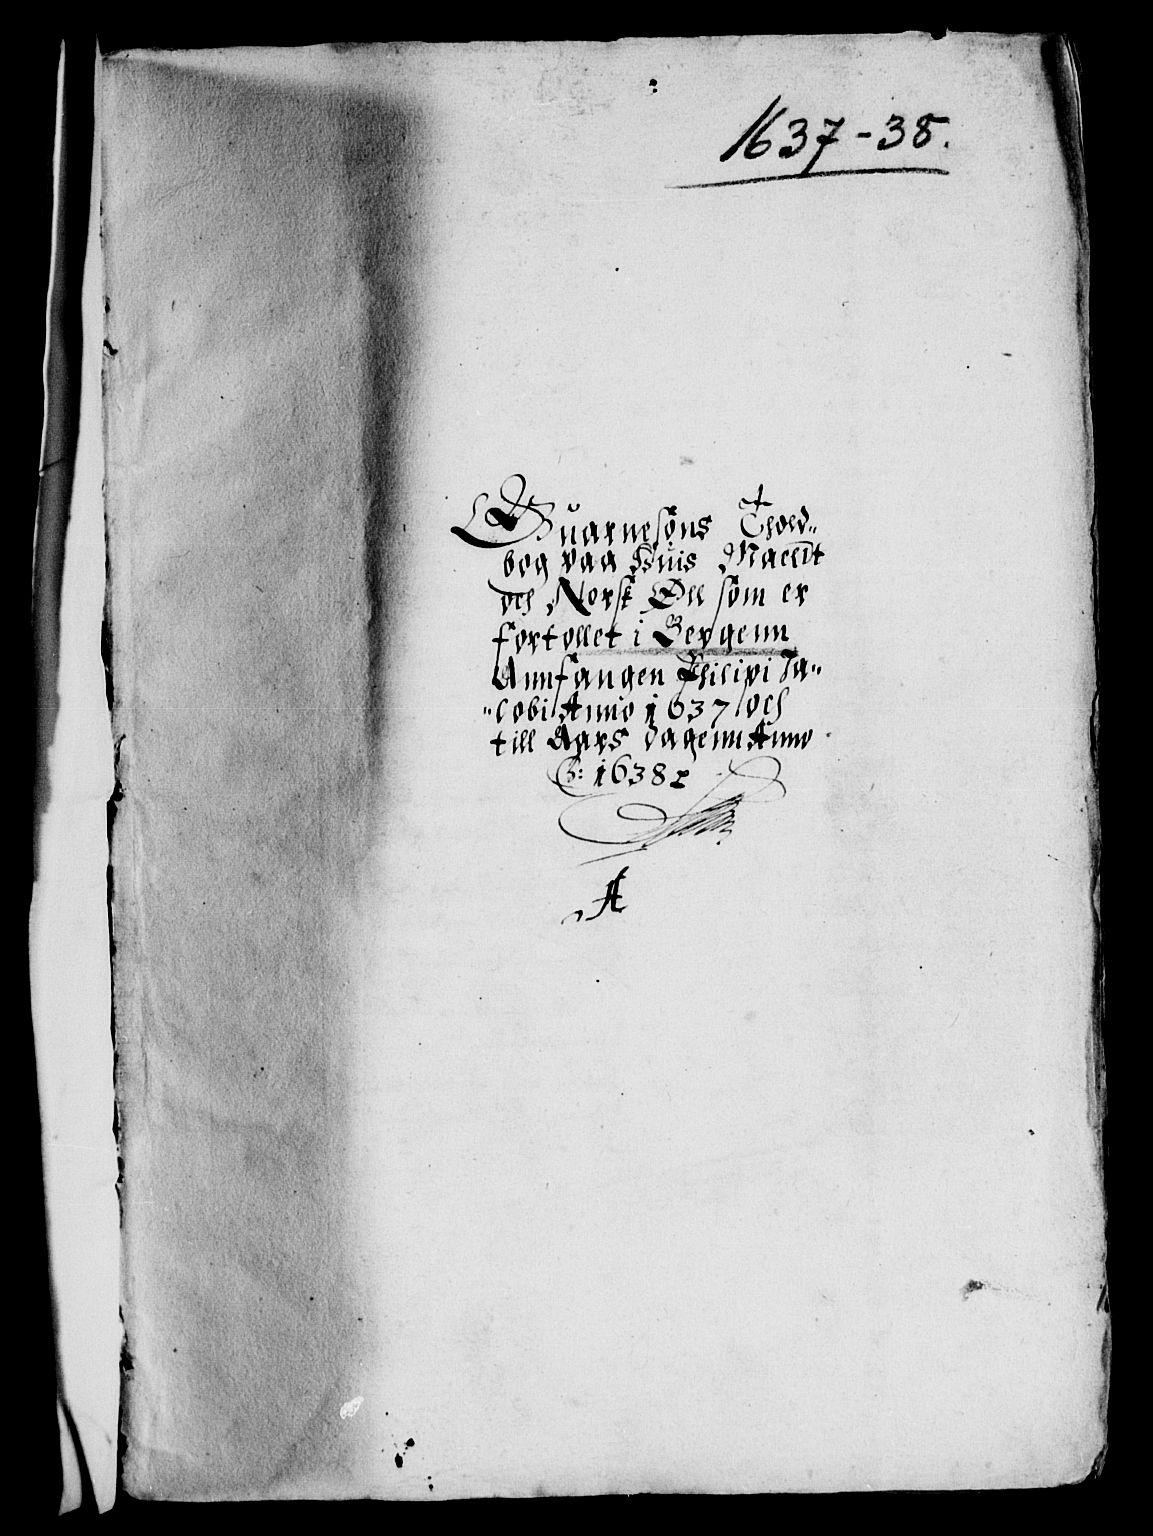 1637-38.
Guarnesöns Thold-
bog paa Huis Maeldt
och Norsk Øll som er
fortollet i Bergenn
Annfangen Philipi Ja-
cobi Anno 1637 och
till Aars dagenn Anno
1638
A